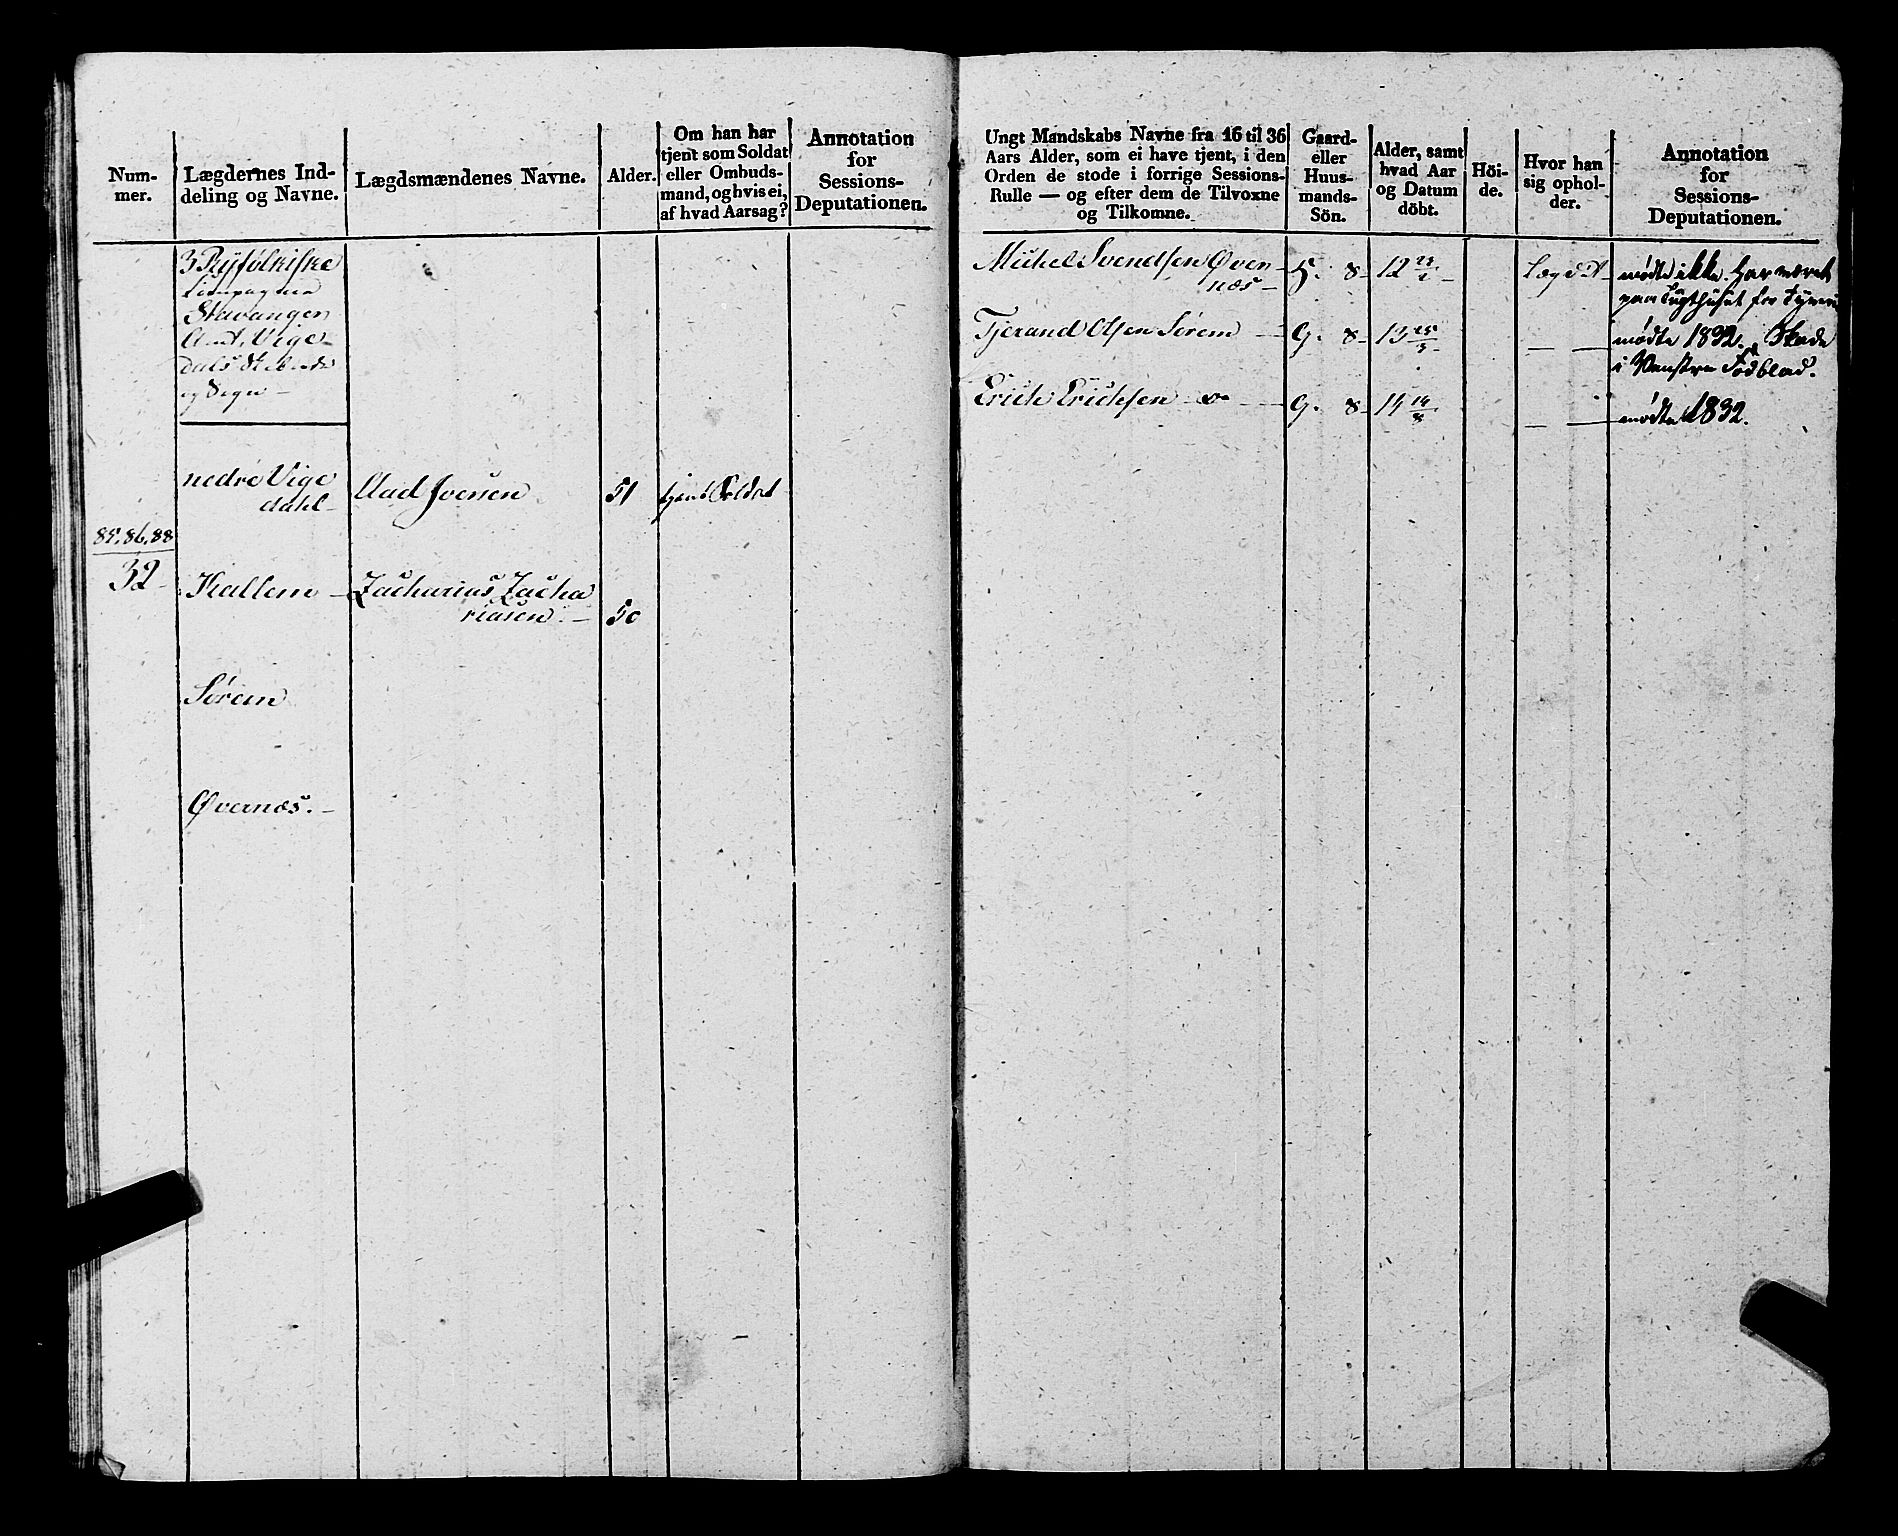 Num-
mer.
Lægdernes Ind-
deling og Navne.
Lægdsmændenes Navne.
Alder.
Om han har
tjent som Soldat
eller Ombuds-
mand, og hvis ei,
af hvad Aarsag?
Annotation
for
Sessions-
Deputationen.
3 Ryfølkiske
Compagnie
Stavanger
Amt, Vige-
dals
og Sogn –
nedre Vige
dahl –
Aad Iversen
51
tjent Soldat
85, 86, 88
32 –
Hallem –
Zacharias Zacha
riasen. –
50
Sørem
Øvernæs. –
Ungt Mandskabs Navne fra 16 til 36
Aars Alder, som ei have tjent, i den
Orden de stode i forrige Sessions-
Rulle — og efter dem de Tilvoxne
og Tilkomne.
Gaard-
eller
Huus-
mands-
Sön.
Alder, samt
hvad Aar
og Datum
döbt.
Höi-
de.
Hvor han
sig ophol-
der.
Annotation
for
Sessions-
Deputationen.
Michel Svendsen Øver-
næs –
G. 8 –
12
Lægdet –
mødte ikke. Har været
paa Tugthuset for Tyveri
Tjerand Olsen Sørem –
G. 8 –
13 25/3 –
— —
mødte 1832. Skade
i Venstre Fodblad.
Erich Erichsen
G. 8 –
14 14/8 –
— —
mødte 1832.